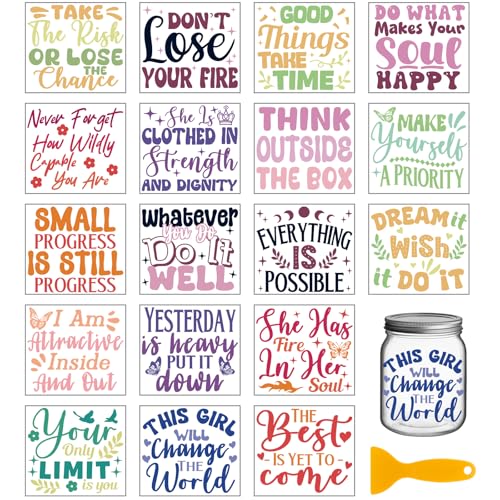 TAKE
The Risk
OR LOSE
THE
Chance
DON'T
Lose
YOUR FIRE
GOOD
Things
TAKE
TIME
DO WHAT
Makes Your
Soul
HAPPY
Never Forget
How Wildly
Capable
You Are
She Is
CLOTHED IN
Strength
AND DIGNITY
THINK
OUTSIDE
THE BOX
MAKE
Yourself
A PRIORITY
SMALL
PROGRESS
IS STILL
PROGRESS
Whatever
You Do
Do It
WELL
EVERYTHING
IS
POSSIBLE
DREAM it
WiSH
it DO iT
I Am
Attractive
Inside
And Out
YESTERDAY
is heavy
PUT IT
down
She Has
Fire
In Her
Soul
THIS GIRL
WILL
Change
THE
World
Your
Only
LIMIT
is you
THIS GIRL
WILL
Change
THE
World
THE
Best
IS YET TO
come